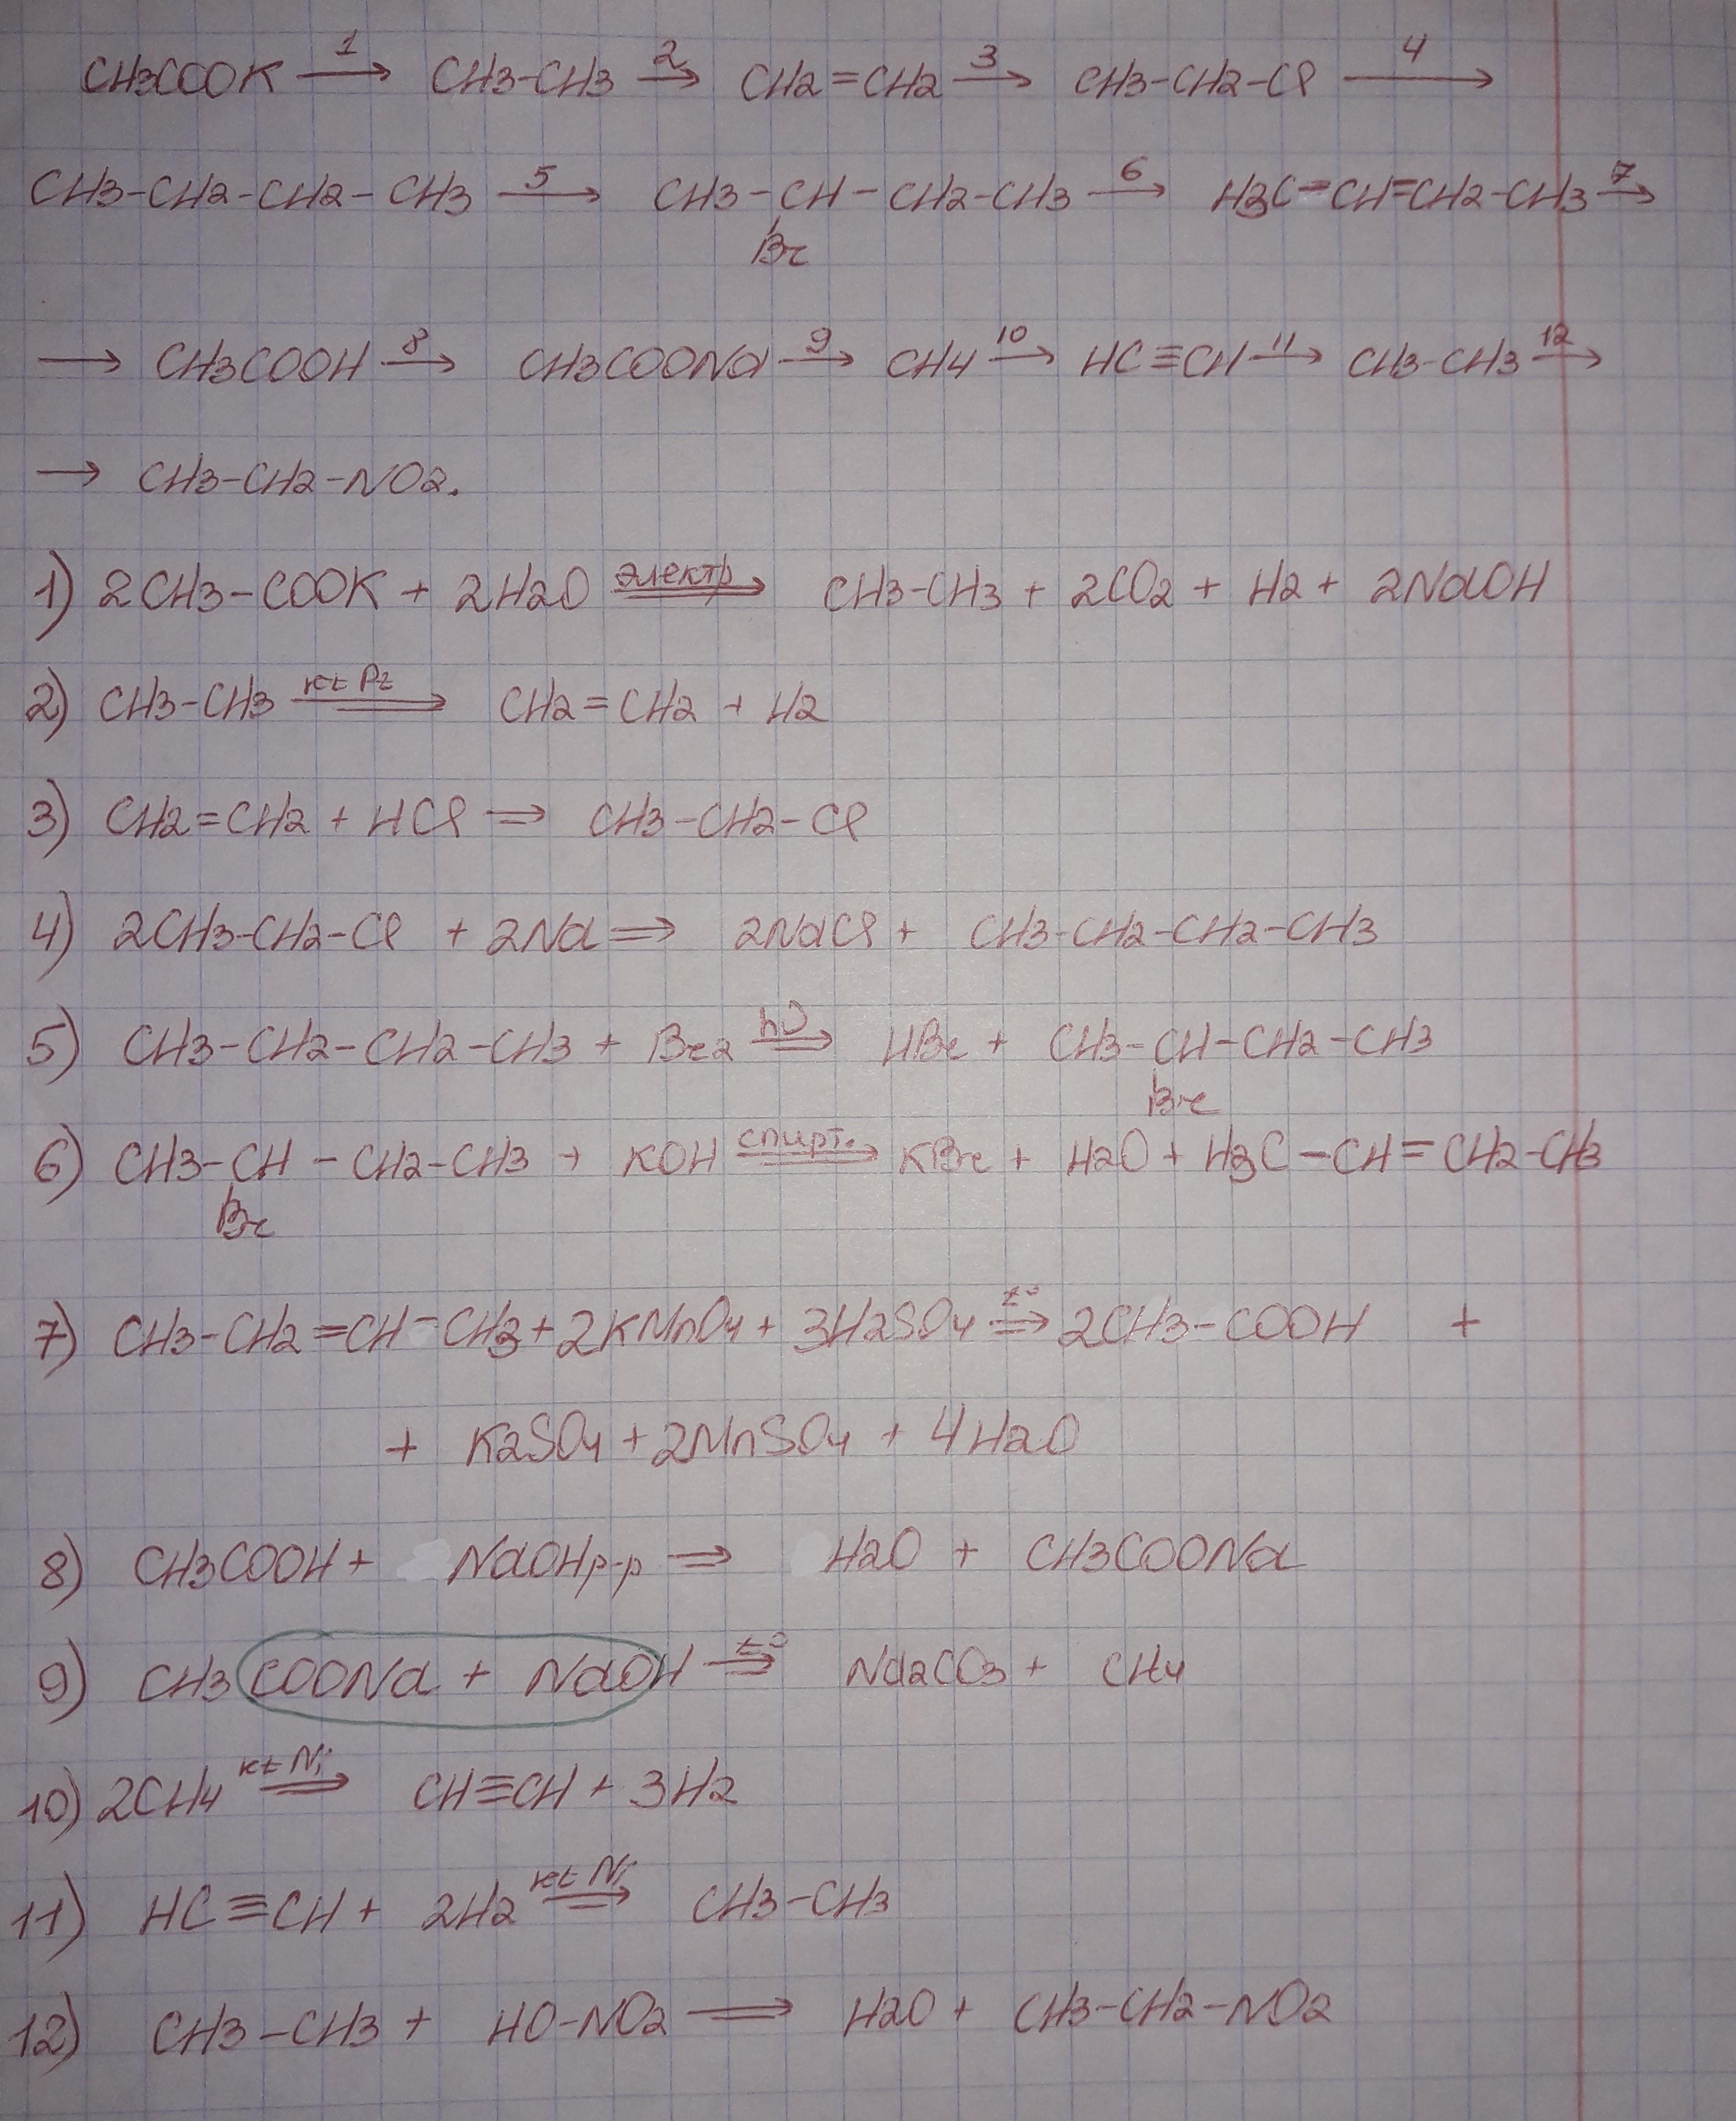 CH3COOK →1 CH3-CH3 →2 CH2=CH2 →3 CH3-CH2-Cl →4
CH3-CH2-CH2-CH3 →5 CH3-CH-CH2-CH3 →6 H3C-CH=CH2-CH3 →7
Br
→ CH3COOH →8 CH3COONa →9 CH4 →10 HC≡CH →11 CH3-CH3 →12
→ CH3-CH2-NO2.
1) 2CH3-COOK + 2H2O электр⇒ CH3-CH3 + 2CO2 + H2 + 2NaOH
2) CH3-CH3 kt Pt⇒ CH2=CH2 + H2
3) CH2=CH2 + HCl ⇒ CH3-CH2-Cl
4) 2CH3-CH2-Cl + 2Na ⇒ 2NaCl + CH3-CH2-CH2-CH3
5) CH3-CH2-CH2-CH3 + Br2 hν⇒ HBr + CH3-CH-CH2-CH3
Br
6) CH3-CH-CH2-CH3 + KOH спирт.⇒ KBr + H2O + H3C-CH=CH2-CH3
Br
7) CH3-CH2=CH-CH3 + 2KMnO4 + 3H2SO4 t°⇒ 2CH3-COOH +
+ K2SO4 + 2MnSO4 + 4H2O
8) CH3COOH + NaOH р-р ⇒ H2O + CH3COONa
9) CH3COONa + NaOH t°⇒ Na2CO3 + CH4
10) 2CH4 kt Ni⇒ CH≡CH + 3H2
11) HC≡CH + 2H2 kt Ni⇒ CH3-CH3
12) CH3-CH3 + HO-NO2 ⇒ H2O + CH3-CH2-NO2